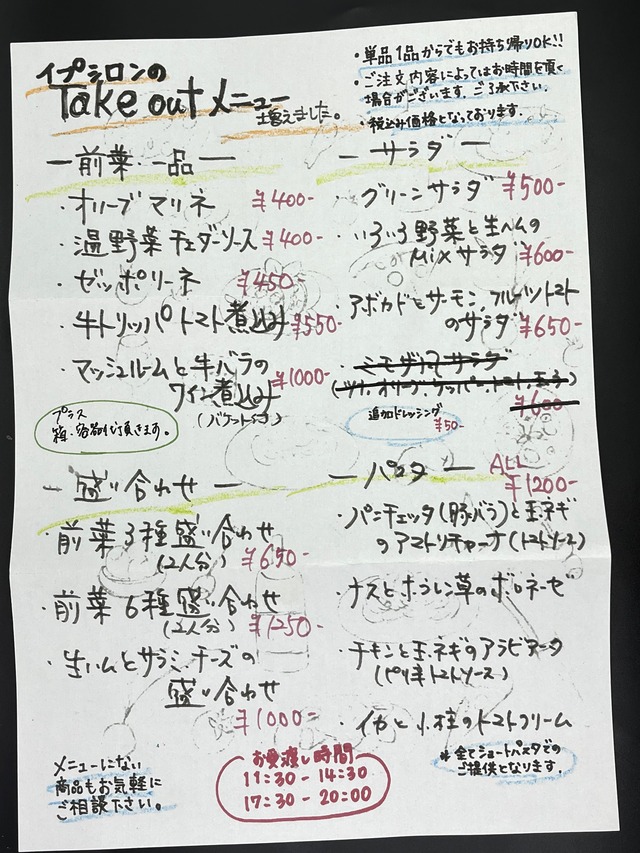 イプシロンの
Take outメニュー
増えました。
・単品1品からでもお持ち帰りOK!!
・ご注文内容によってはお時間を頂く
場合がございます。ご了承下さい。
・税込み価格となっております。
ー前菜一品ー
・オリーブマリネ ¥400-
・温野菜チェダーソース ¥400-
・ゼッポリーネ ¥450-
・牛トリッパトマト煮込み ¥550-
・マッシュルームと牛バラの
ワイン煮込み ¥1000-
(バケット付)
プラス
箱・容器代頂きます。
ーサラダー
・グリーンサラダ ¥500-
・いろいろ野菜と生ハムの
Mixサラダ ¥600-
・アボカドとサーモン、フルーツトマト
のサラダ ¥650-
・ミモザ風サラダ
(ツナ、オリーブ、ケッパー、トマト、玉子)
¥600
追加ドレッシング
¥50-
ー盛り合わせー
・前菜3種盛り合わせ
(2人分) ¥650-
・前菜6種盛り合わせ
(2人分) ¥1250-
・生ハムとサラミ、チーズの
盛り合わせ
¥1000-
ーパスター ALL
¥1200-
・パンチェッタ(豚バラ)と玉ネギ
のアマトリチャーナ(トマトソース)
・ナスとホウレン草のボロネーゼ
・チキンと玉ネギのアラビアータ
(ピリ辛トマトソース)
・イカと小柱のトマトクリーム
*全てショートパスタでの
ご提供となります
メニューにない
商品もお気軽に
ご相談下さい。
お受渡し時間
11:30-14:30
17:30-20:00